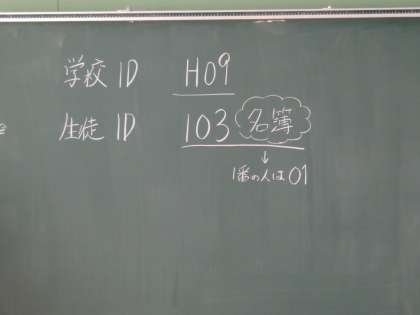 学校 ID H09
生徒 ID 103 名簿
↓
1番の人は01